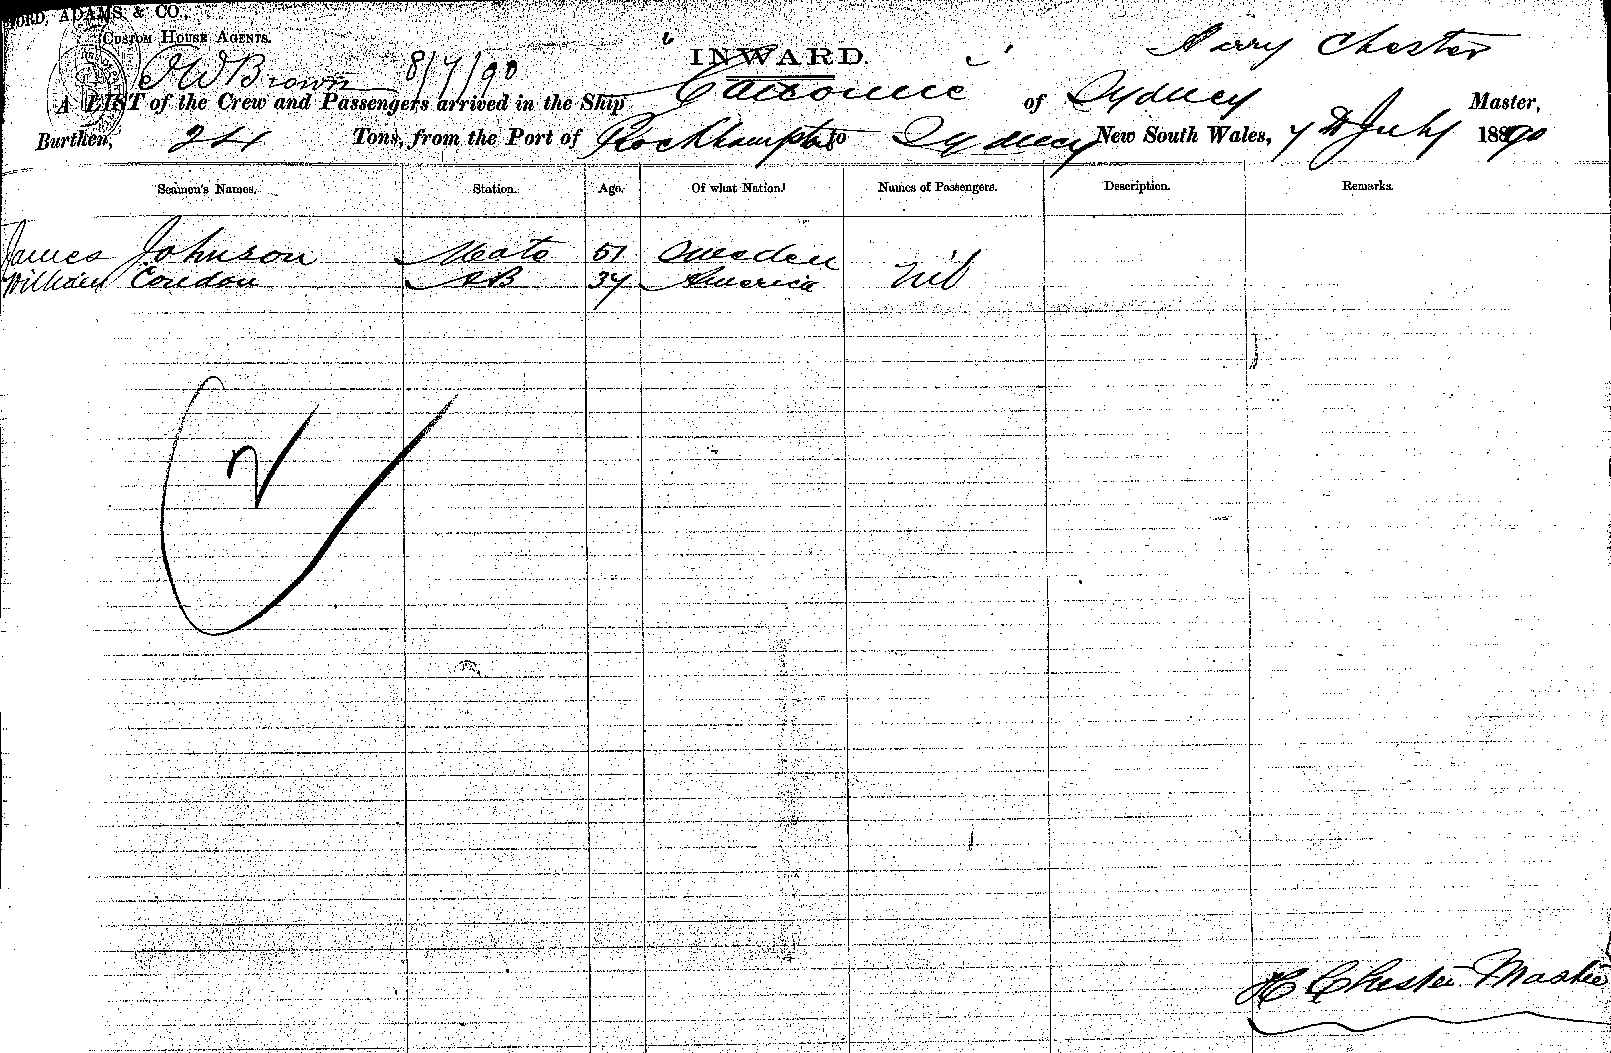 ORD, ADAMS & CO.,
CUSTOM HOUSE AGENTS.
Harry Chester
INWARD.
J W Brown 8/7/90
A LIST of the Crew and Passengers arrived in the Ship of Sydney Master,
Burthen, 244 Tons, from the Port of Rockhampton to Sydney New South Wales, 7th July 1890
Seamen's Names. Station. Age. Of what Nation? Names of Passengers. Description. Remarks.
James Johnson Mate 51 Sweden nil
William Condon AB 37 America
2
H Chester Master